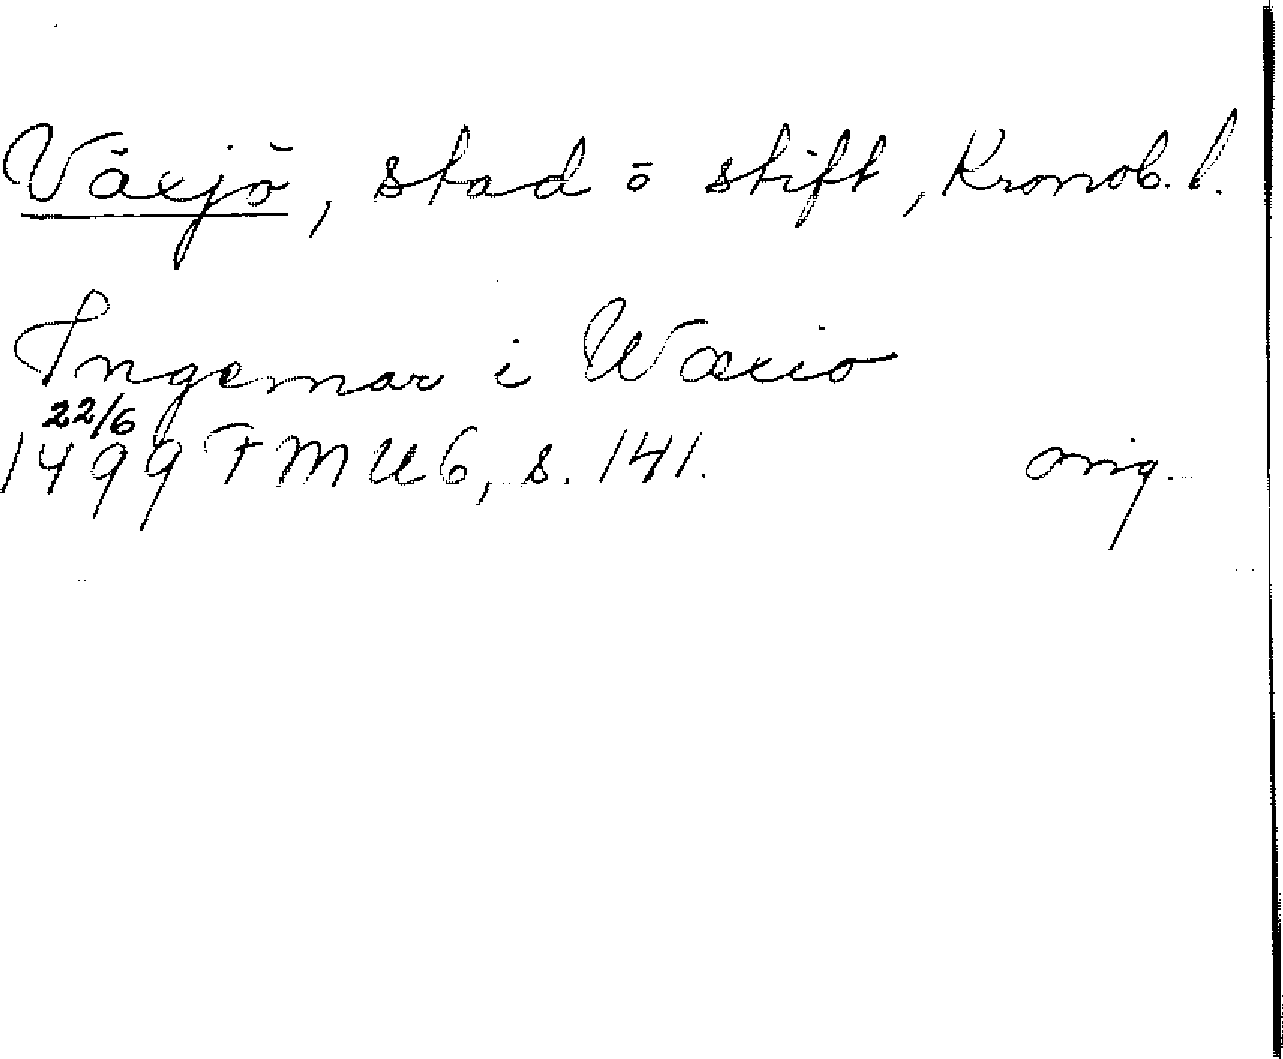 Växjö, stad o stift, Kronob. l.
Ingemar i Wæxio
22/6
1499 FMU 6, s. 141. orig.